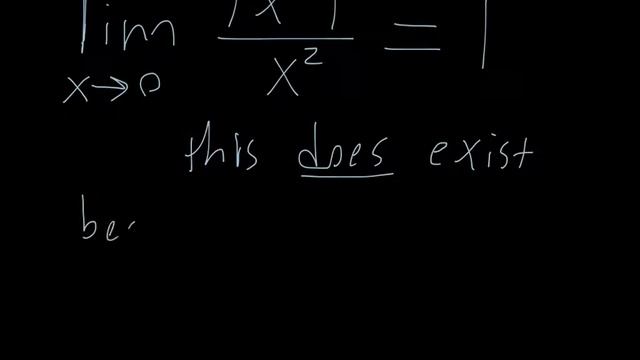 lim |x²| / x² = 1
x→0
this does exist
bec